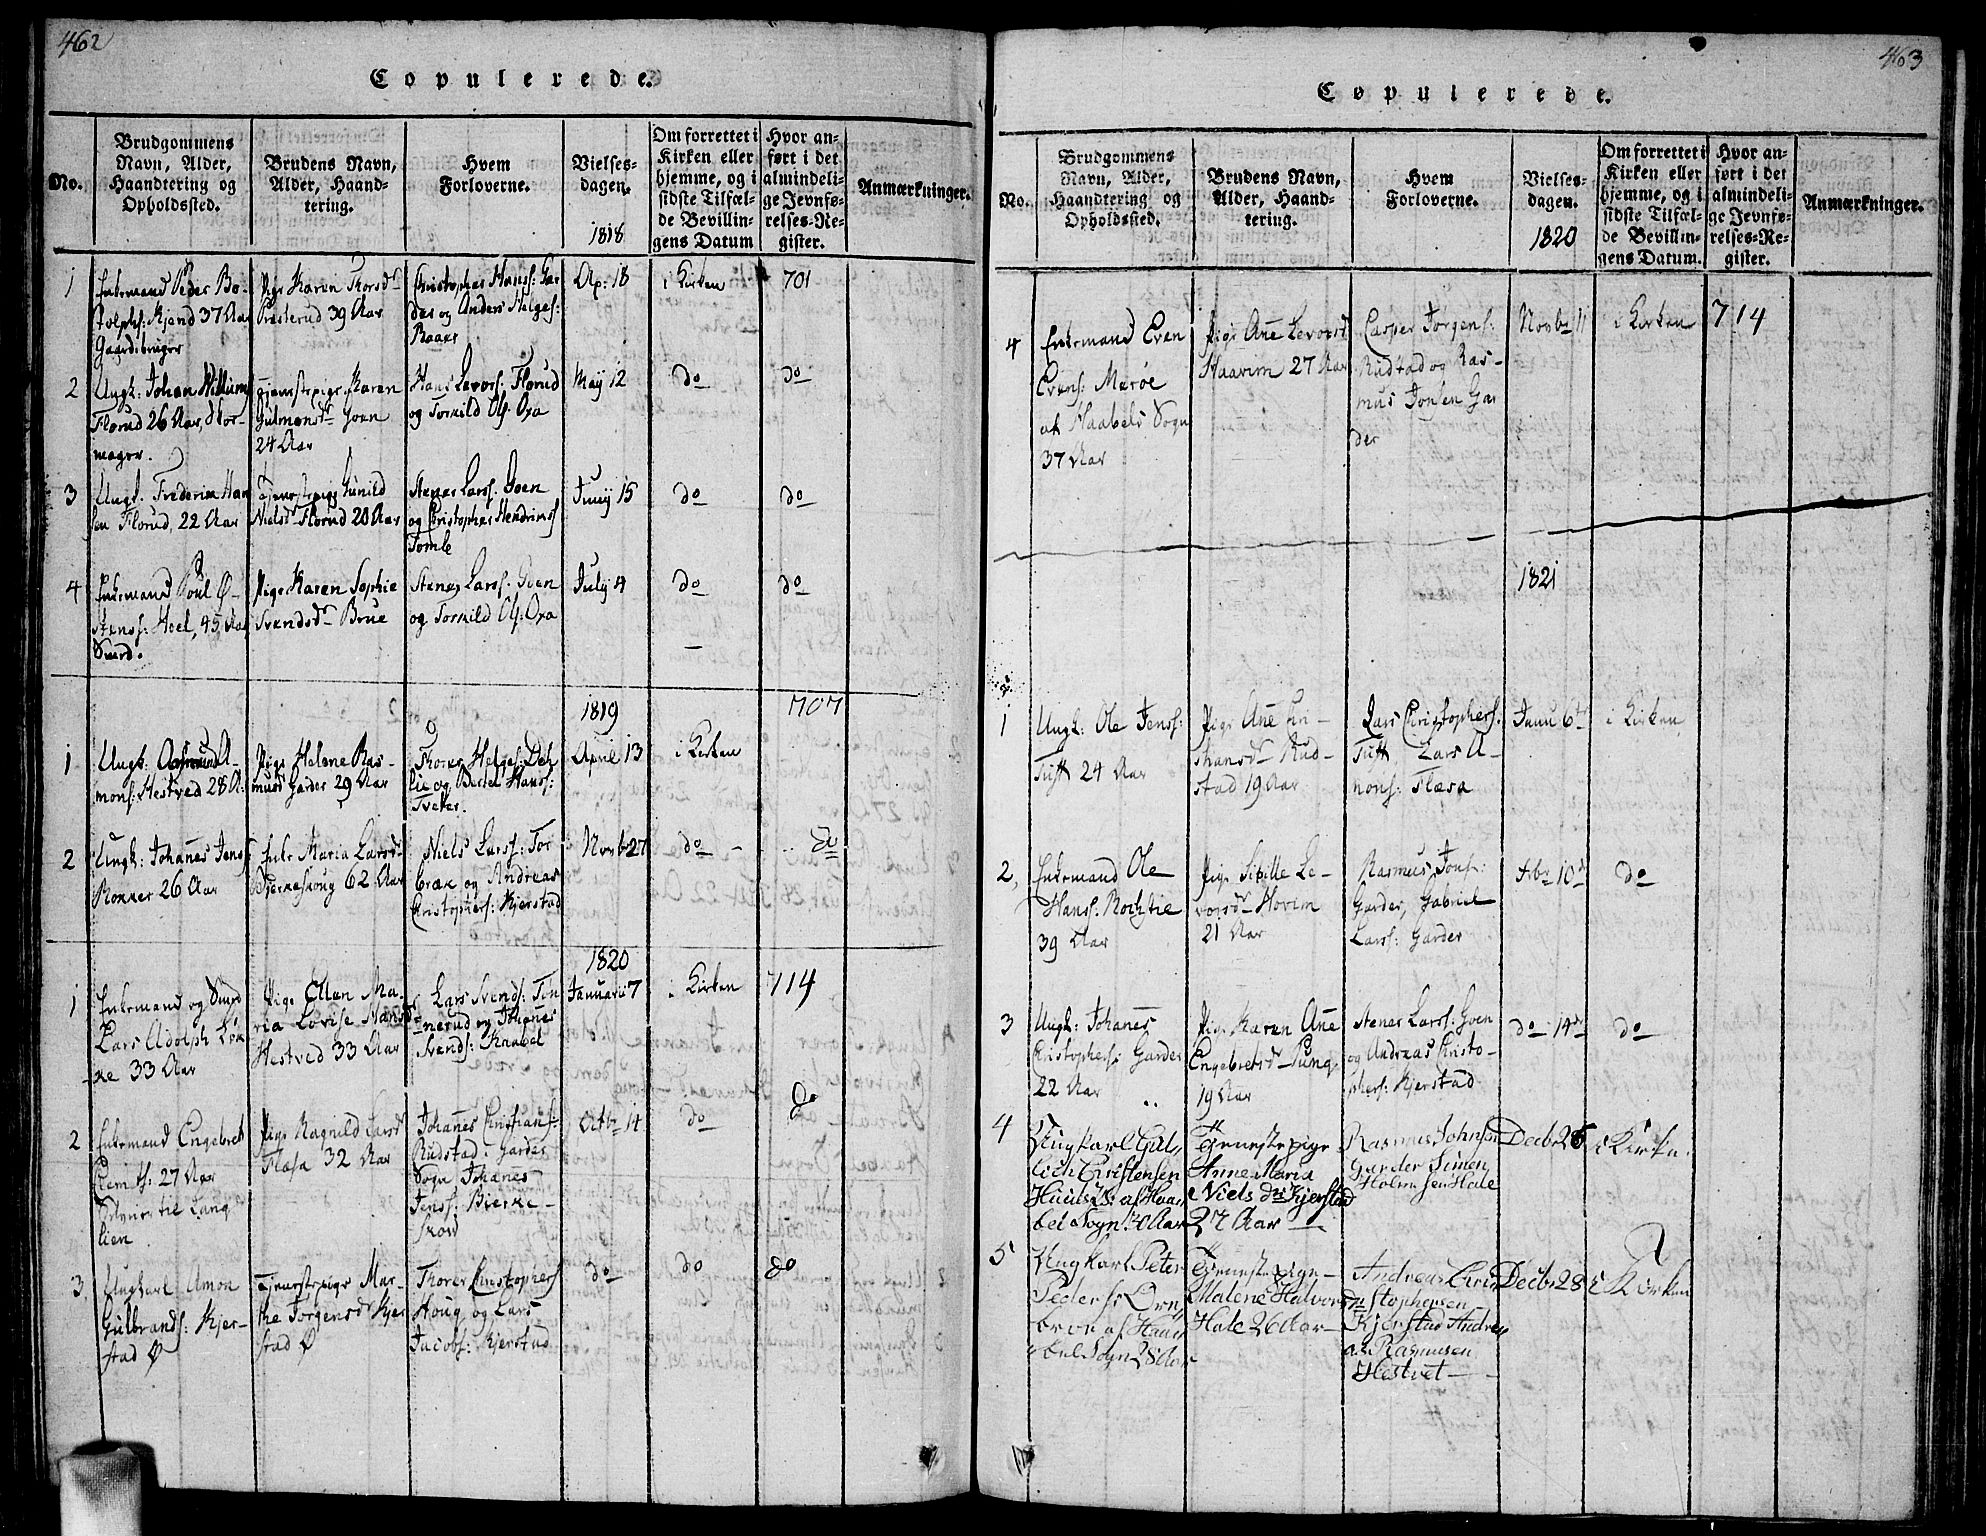 462
Copulerede.
No.
Brudgommens
Navn, Alder,
Haandtering og
Opholdssted.
Brudens Navn,
Alder, Haand-
tering.
Hvem
Forloverne.
Vielses-
dagen.
1818
Om forrettet i
Kirken eller
hjemme, og i
sidste Tilfæl-
de Bevillin-
gens Datum
Hvor an-
ført i det
almindeli-
ge Jevnfø-
relses-Re-
gister.
Anmærkninger.
1
Enkemand Peder Bo-
Kjend 37 Aar
Gaardbruger
Pige Karen Thorsdr
Presterud 39 Aar
Christopher Hanss: Gar
der og Anders Helges:
Ap: 18
i Kirken
701
2
Ungk: Johan Willum
Florud 26 Aar,
Tjenestepige Karen
Goen
24 Aar
Hans Levors: Florud
og Torkild Ols: Oxa
May 12
do
do
3
Ungk: Frederik Han
sen Florud, 22 Aar
Tjenestepige Gunild
Nielsdr Florud 20 Aar
Stener Larss: Goen
og Christopher Hendrikss
Tomle
Juny 15
do
do
4
Enkemand Poul Ø-
stenss: Hoel, 45 Aar
Smed.
Pige Karen Sophie
Svendsdr Brue
Stener Larss: Goen
og Torkild Ols: Oxa
July 4
do
do
1819
707
1
Ungk: A-
mons: Hestved 28 A:
Pige Helene Ras-
musd Garder 29 Aar
Thorer Helges: Deh
lie og Bertel Hanss:
Tveter.
April 13
i Kirken
2
Ungk: Johanes Jens:
Rokker 26 Aar
Enke Maria Larsdr
Bjerkeskoug 62 Aar
Niels Larss: Tor
bræk og Andreas
Christophers: Kjerstad
Novbr 27
do
do
1820
1
Enkemand og Smed
Lars Adolph Løk
ke 33 Aar
Pige Ellen Ma-
ria Lovise Hansdr
Hestved 33 Aar
Lars Svends: Tin
nerud og Johanes
Svends: Knabel
Januarii 7
i Kirken
714
2
Enkemand Engebret
Clemits: 27 Aar
til Lang
lien
Pige Ragnild Larsdr
Flæsa 32 Aar
Johanes Christians:
Rudstad i Garder
Sogn Johanes
Jenss: Bjerke-
skow
Octbr 14
do
do
3.
Ungkarl Amon
Gulbrands: Kjer-
stad Ø
Tjenestepige Mar-
the Jørgensdr Kjer
stad Ø
Thorer Christophers
Houg og Lars
Jacobs: Kjerstad
do
do
do
463
Copulerede.
No.
Brudgommens
Navn, Alder,
Haandtering og
Opholdssted.
Brudens Navn,
Alder, Haand-
tering.
Hvem
Forloverne.
Vielses-
dagen.
1820
Om forrettet i
Kirken eller
hjemme, og i
sidste Tilfæl-
de Bevillin-
gens Datum.
Hvor an-
ført i det
almindeli-
ge Jevnfø-
relses-Re-
gister.
Anmærkninger.
4
Enkemand Even
Evens: Merøe
af Haabels Sogn
37 Aar
Pige Ane Levorsd
Haavim 27 Aar
Casper Jørgens:
Rudstad og Ras-
mus Jonsen Gar
der
Novbr 11
i Kirken
714
1821
1
Ungk: Ole Jenss:
Tuft 24 Aar
Pige Ane Jo-
hansdr Rud-
stad 19 Aar
Lars Christophers:
Tuft Lars A-
mons: Flæsa
Janu 6te
i Kirken
2,
Enkemand Ole
Hanss:
39 Aar
Pige Sibille Le-
vorsdr Hovim
21 Aar
Rasmus Jons:
Garder, Gabriel
Larss: Garder
Febr 10de
do
3
Ungk: Johanes
Christophers: Garder
22 Aar
Pige Karen Ane
Engebretsdr Pung
19 Aar
Stener Larss: Goen
og Andreas Christo-
phers: Kjerstad
do 14de
do
4
Ungkarl Gul-
lich Christensen
af Haa-
bel Sogn 30 Aar
Tjenestepige
Anne Maria
Niels dtr Kjerstad
27 Aar
Rasmus Johnsen
Garder Simen
Holmsen Hale
Decbr 26
i Kirken.
5
Ungkarl Peter
Peders:
af Haa-
bel Sogn 28 Aar
Tjenestepige
Malene Halvors
dtr
Hale 26 Aar
Andreas Chri
stophersen
Kjerstad Andre
as Rasmusen
Hestvet
Decbr 28
i Kirken